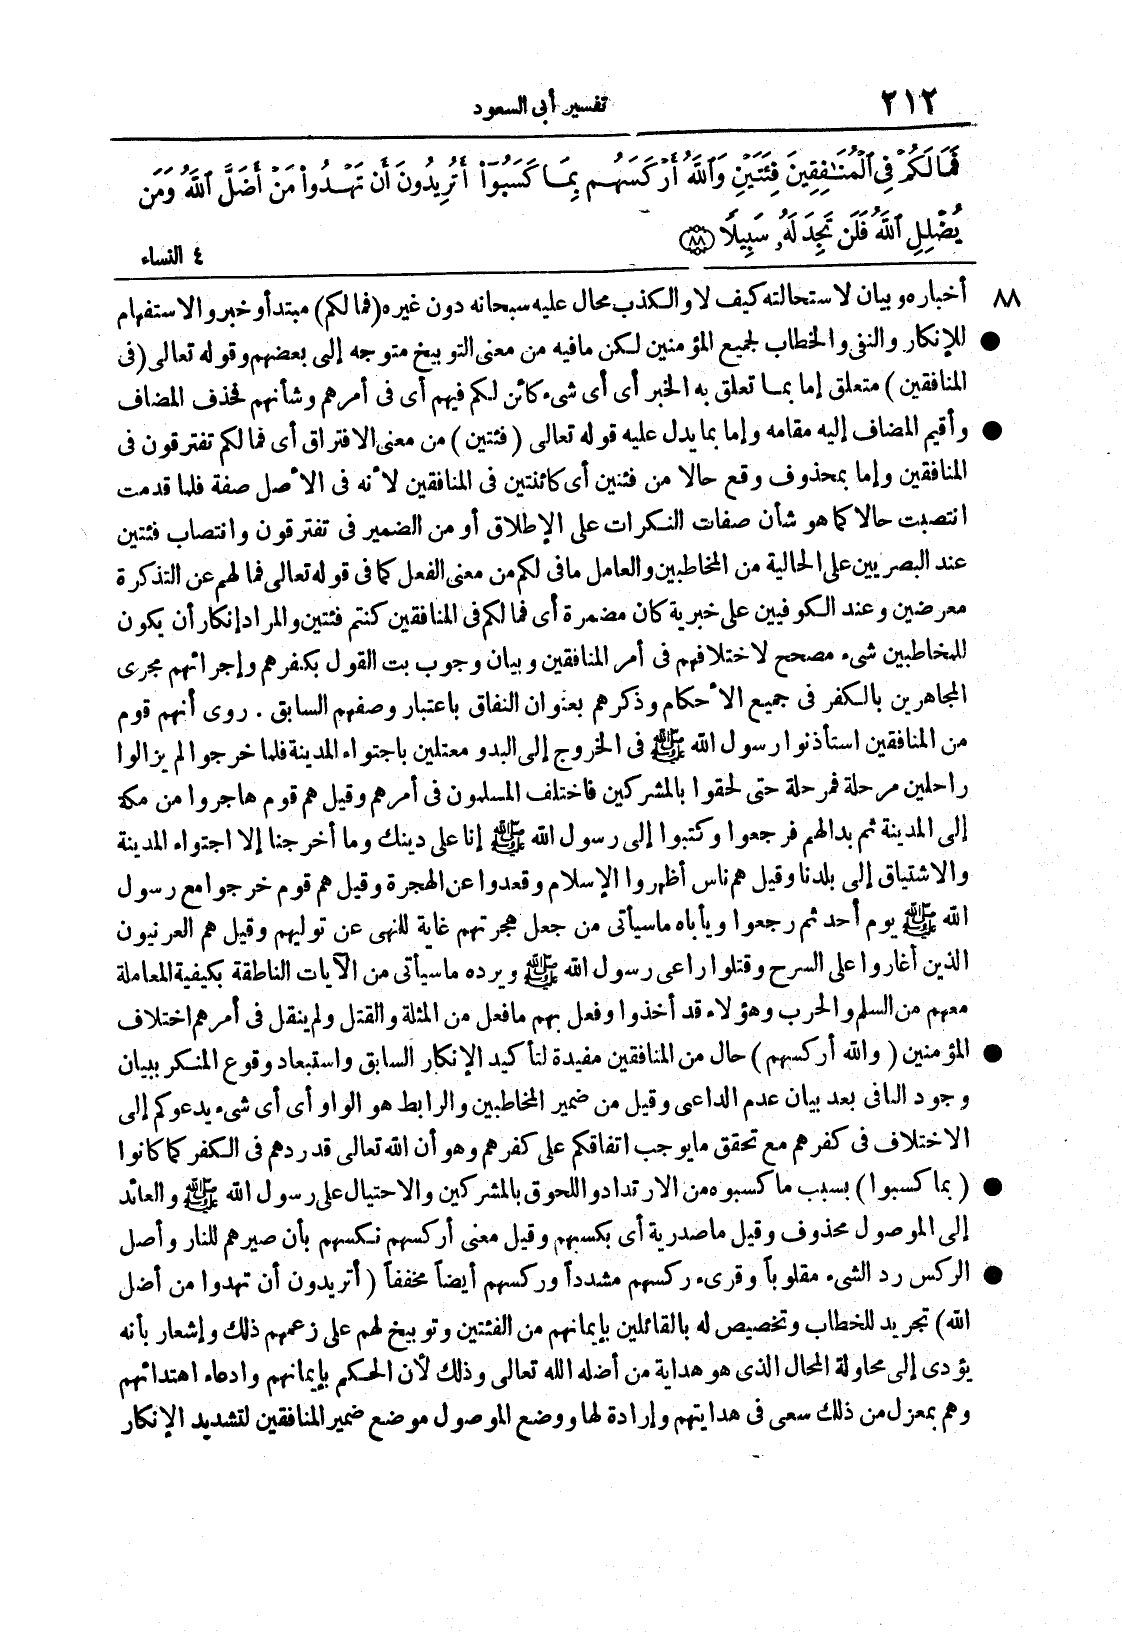 ٢١٢
تفسير أبى السعود
فَمَا لَكُمْ فِى ٱلْمُنَـٰفِقِينَ فِئَتَيْنِ وَٱللَّهُ أَرْكَسَهُم بِمَا كَسَبُوٓا۟ أَتُرِيدُونَ أَن تَهْدُوا۟ مَنْ أَضَلَّ ٱللَّهُ وَمَن
يُضْلِلِ ٱللَّهُ فَلَن تَجِدَ لَهُۥ سَبِيلًا ﴿٨٨﴾
٤ النساء
٨٨ أخباره وبيان لاستحالته كيف لا والكذب محال عليه سبحانه دون غيره (فما لكم) مبتدأ وخبر والاستفهام
● للإنكار والنفى والخطاب لجميع المؤمنين لكن ما فيه من معنى التوبيخ متوجه إلى بعضهم وقوله تعالى (فى
المنافقين) متعلق إما بما تعلق به الخبر أى أى شىء كائن لكم فيهم أى فى أمرهم وشأنهم فحذف المضاف
● وأقيم المضاف إليه مقامه وإما بما يدل عليه قوله تعالى (فئتين) من معنى الافتراق أى فما لكم تفترقون فى
المنافقين وإما بمحذوف وقع حالا من فئتين أى كائنتين فى المنافقين لأنه فى الأصل صفة فلما قدمت
انتصبت حالا كما هو شأن صفات النكرات على الإطلاق أو من الضمير فى تفترقون وانتصاب فئتين
عند البصريين على الحالية من المخاطبين والعامل ما فى لكم من معنى الفعل كما فى قوله تعالى فما لهم عن التذكرة
معرضين وعند الكوفيين على خبرية كان مضمرة أى فما لكم فى المنافقين كنتم فئتين والمراد إنكار أن يكون
للمخاطبين شىء مصحح لاختلافهم فى أمر المنافقين وبيان وجوب بت القول بكفرهم وإجرائهم مجرى
المجاهرين بالكفر فى جميع الأحكام وذكرهم بعنوان النفاق باعتبار وصفهم السابق . روى أنهم قوم
من المنافقين استأذنوا رسول الله ﷺ فى الخروج إلى البدو معتلين باجتواء المدينة فلما خرجوا لم يزالوا
راحلين مرحلة فمرحلة حتى لحقوا بالمشركين فاختلف المسلمون فى أمرهم وقيل هم قوم هاجروا من مكة
إلى المدينة ثم بدا لهم فرجعوا وكتبوا إلى رسول الله ﷺ إنا على دينك وما أخرجنا إلا اجتواء المدينة
والاشتياق إلى بلدنا وقيل هم ناس أظهروا الإسلام وقعدوا عن الهجرة وقيل هم قوم خرجوا مع رسول
الله ﷺ يوم أحد ثم رجعوا ويأباه ما سيأتى من جعل هجرتهم غاية للنهى عن توليهم وقيل هم العرنيون
الذين أغاروا على السرح وقتلوا راعى رسول الله ﷺ ويرده ما سيأتى من الآيات الناطقة بكيفية المعاملة
معهم من السلم والحرب وهؤلاء قد أخذوا وفعل بهم ما فعل من المثلة والقتل ولم ينقل فى أمرهم اختلاف
● المؤمنين (والله أركسهم) حال من المنافقين مفيدة لتأكيد الإنكار السابق واستبعاد وقوع المنكر ببيان
وجود النافى بعد بيان عدم الداعى وقيل من ضمير المخاطبين والرابط هو الواو أى أى شىء يدعوكم إلى
الاختلاف فى كفرهم مع تحقق ما يوجب اتفاقكم على كفرهم وهو أن الله تعالى قد ردهم فى الكفر كما كانوا
● (بما كسبوا) بسبب ما كسبوه من الارتداد واللحوق بالمشركين والاحتيال على رسول الله ﷺ والعائد
إلى الموصول محذوف وقيل ما مصدرية أى بكسبهم وقيل معنى أركسهم نكسهم بأن صيرهم للنار وأصل
● الركس رد الشىء مقلوباً وقرىء ركسهم مشدداً وركسهم أيضاً مخففاً (أتريدون أن تهدوا من أضل
الله) تجريد للخطاب وتخصيص له بالقائلين بإيمانهم من الفئتين وتوبيخ لهم على زعمهم ذلك وإشعار بأنه
يؤدى إلى محاولة المحال الذى هو هداية من أضله الله تعالى وذلك لأن الحكم بإيمانهم وادعاء اهتدائهم
وهم بمعزل من ذلك سعى فى هدايتهم وإرادة لها ووضع الموصول موضع ضمير المنافقين لتشديد الإنكار